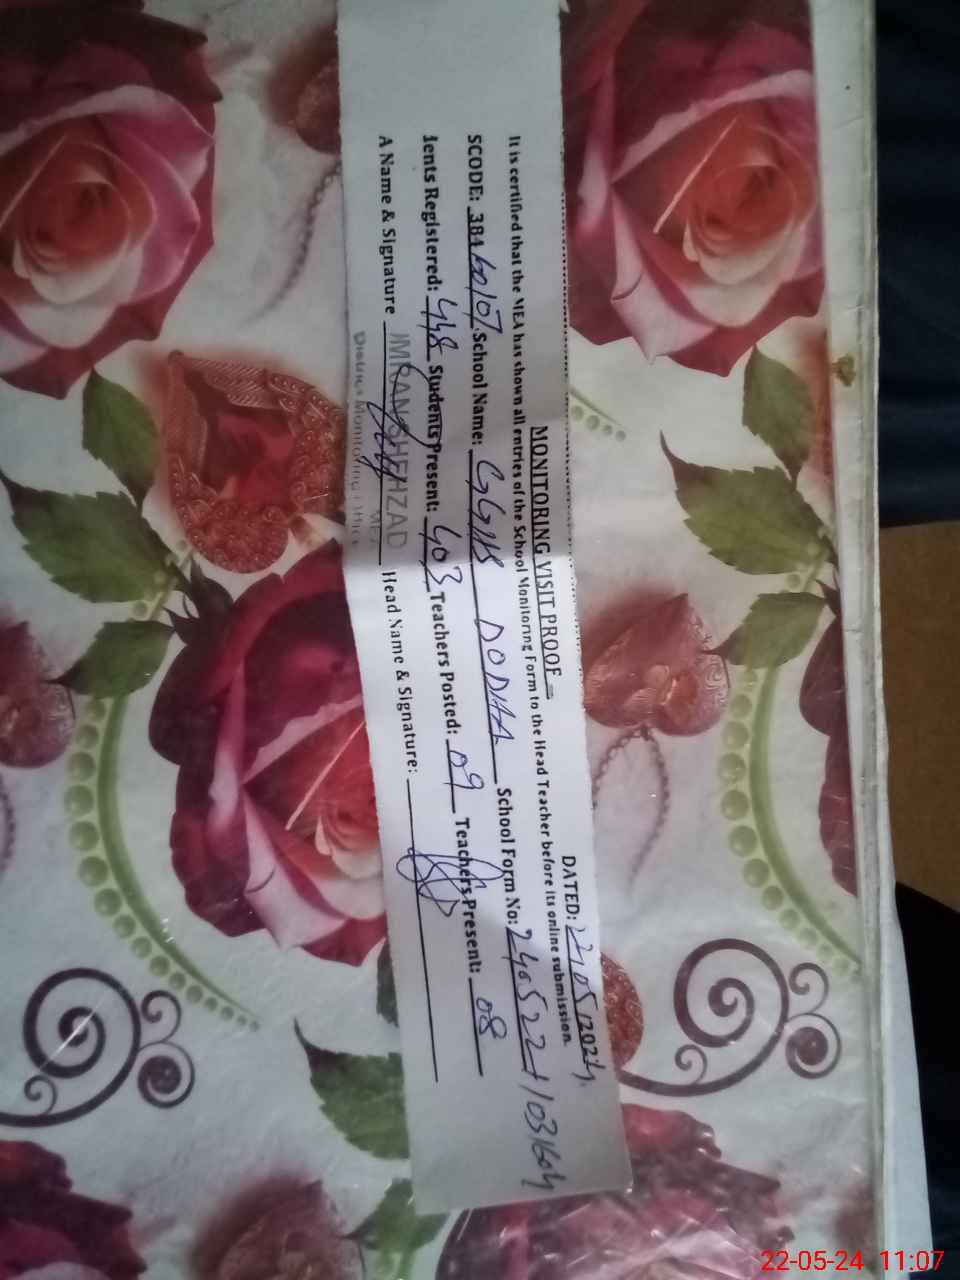 MONITORING VISIT PROOF
DATED: 22/05/2024
It is certified that the MEA has shown all entries of the School Monitoring Form to the Head Teacher before its online submission.
SCODE: 38460107 School Name: GGHS DODHA School Form No: 240522
dents Registered: 448 Students Present: 403 Teachers Posted: 09 Teachers Present: 08
A Name & Signature IMRAN SHEHZAD Head Name & Signature:
MEA
District Monitoring Office
22-05-24 11:07